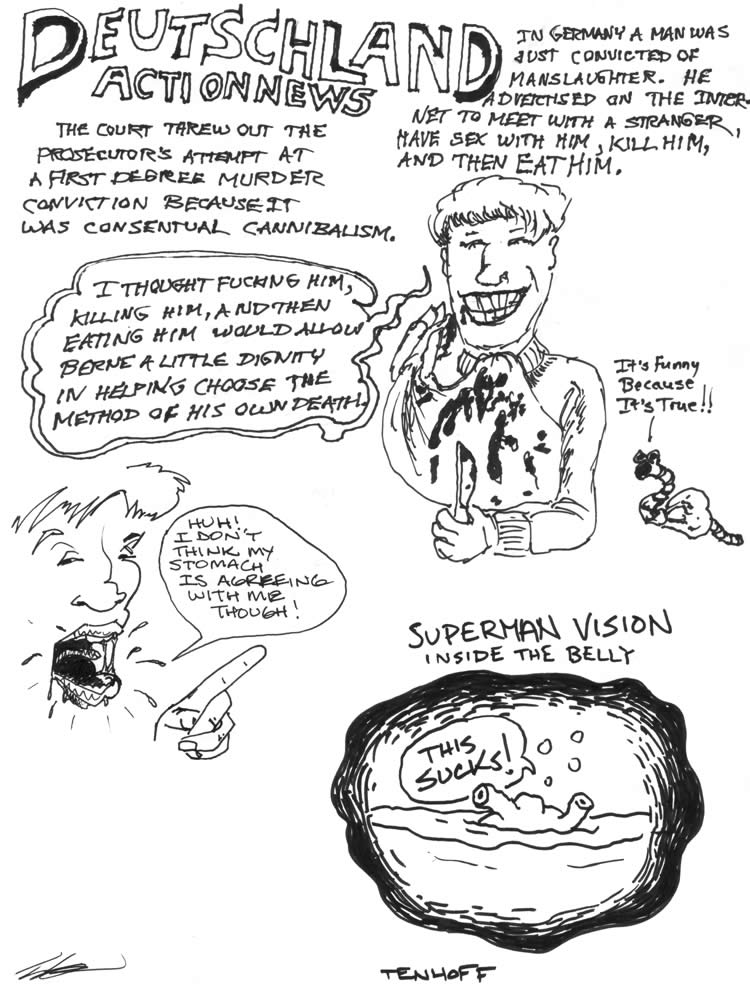 DEUTSCHLAND
ACTION NEWS
IN GERMANY A MAN WAS
JUST CONVICTED OF
MANSLAUGHTER. HE
ADVERTISED ON THE INTER-
NET TO MEET WITH A STRANGER,
HAVE SEX WITH HIM, KILL HIM,
AND THEN EAT HIM.
THE COURT THREW OUT THE
PROSECUTOR'S ATTEMPT AT
A FIRST DEGREE MURDER
CONVICTION BECAUSE IT
WAS CONSENTUAL CANNIBALISM.
I THOUGHT FUCKING HIM,
KILLING HIM, AND THEN
EATING HIM WOULD ALLOW
BERNE A LITTLE DIGNITY
IN HELPING CHOOSE THE
METHOD OF HIS OWN DEATH.
It's Funny
Because
It's True!!
HUH!
I DON'T
THINK MY
STOMACH
IS AGREEING
WITH ME
THOUGH!
SUPERMAN VISION
INSIDE THE BELLY
THIS
SUCKS!
TENHOFF